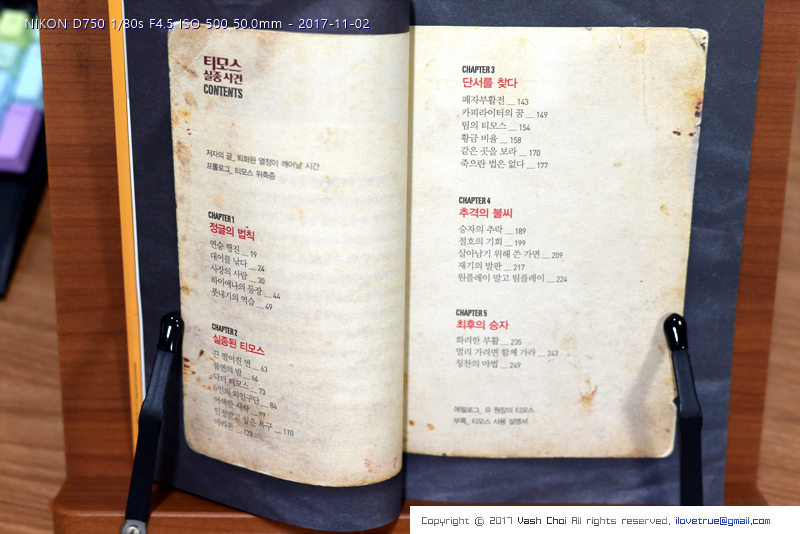 NIKON D750 1/80s F4.5 ISO 500 50.0mm - 2017-11-02
티모스
실종 사건
CONTENTS
저자의 글_ 퇴화된 열정이 깨어날 시간
프롤로그_ 티모스 위축증
CHAPTER 1
정글의 법칙
연승 행진 __ 19
대어를 낚다 __ 24
사장의 사람 __ 30
하이에나의 등장 __ 44
풋내기의 역습 __ 49
CHAPTER 2
실종된 티모스
끈 떨어진 연 __ 63
불면의 밤 __ 66
닥터 티모스 __ 73
6인의 외인구단 __ 84
어색한 시작 __ 99
인정받고 싶은 욕구 __ 110
마라톤 __ 129
CHAPTER 3
단서를 찾다
패자부활전 __ 143
카피라이터의 꿈 __ 149
팀의 티모스 __ 154
황금 비율 __ 158
같은 곳을 보라 __ 170
죽으란 법은 없다 __ 177
CHAPTER 4
추격의 불씨
승자의 추락 __ 189
절호의 기회 __ 199
살아남기 위해 쓴 가면 __ 209
재기의 발판 __ 217
원플레이 말고 팀플레이 __ 224
CHAPTER 5
최후의 승자
화려한 부활 __ 235
멀리 가려면 함께 가라 __ 243
칭찬의 마법 __ 249
에필로그_ 유 원장의 티모스
부록_ 티모스 사용 설명서
Copyright © 2017 Vash Choi All rights reserved, ilovetrue@gmail.com